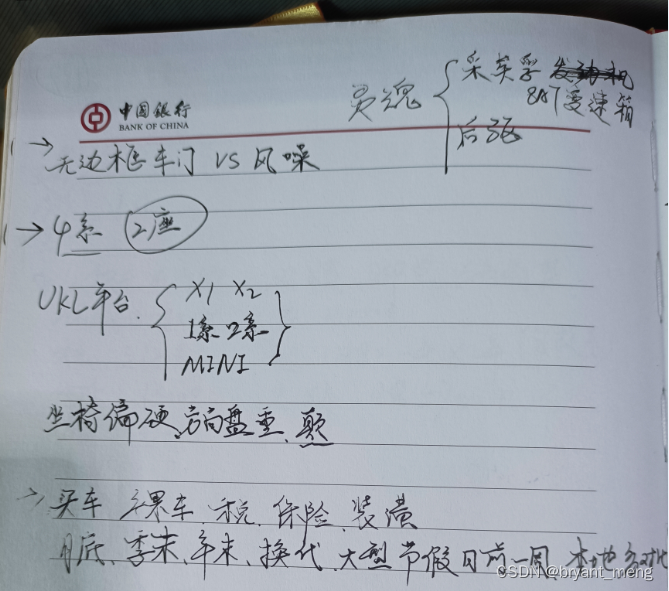 中国银行
BANK OF CHINA
灵魂 { 采埃孚 发动机
8AT变速箱
后驱
→ 无边框车门 VS 风噪
→ 4系 2座
UKL平台 { X1 X2
1系 2系 }
MINI
坐椅偏硬、方向盘重、颠
→ 买车 裸车、税、保险、装潢
月底、季末、年末、换代、大型节假日前一周、本地
CSDN @bryant_meng